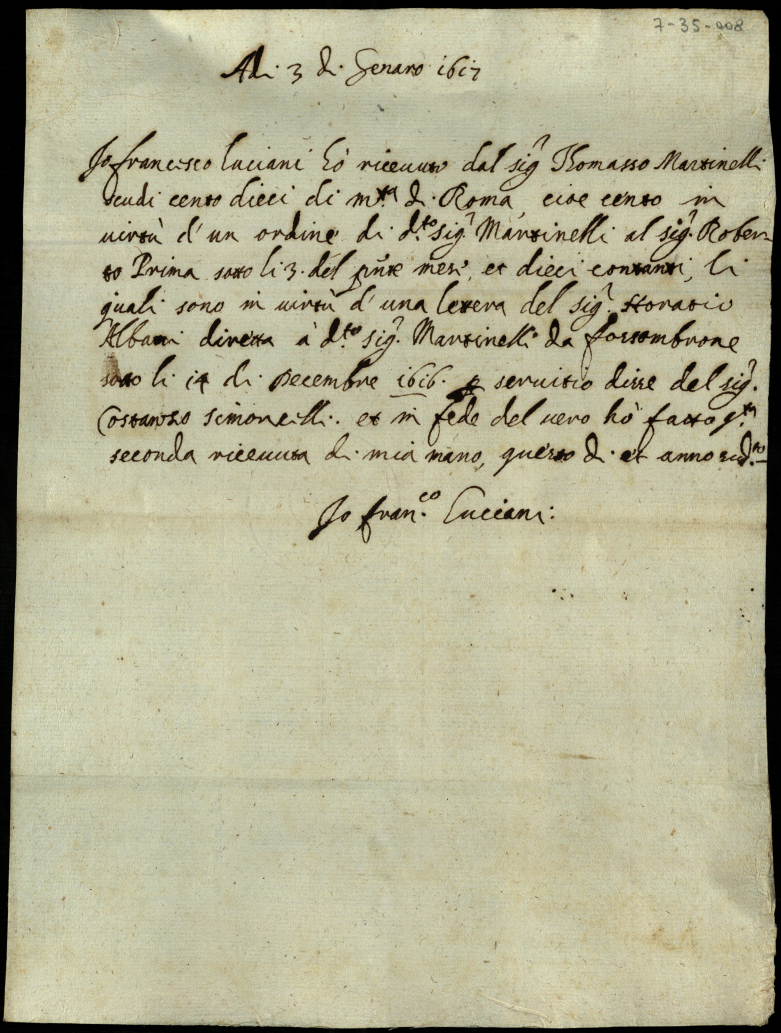 7-35-008
Adi 3 di Genaro 1617
Io francesco luciani hò riceuuto dal sig.r Thomasso Martinelli
scudi cento dieci di m.ta di Roma, cioe cento in
uirtù d'un ordine di d.to sig.r Martinelli al sig.r Rober-
to Prima sotto li 3. del pñte mese, et dieci contanti, li
quali sono in uirtù d'una letera del sig.r Horatio
Albani diretta à d.to sig.r Martinelli da fossombrone
sotto li 14 di Decembre 1616. p seruitio disse del sig.r
Costanzo Simoncelli. et in fede del uero hò fatto q.ta
seconda riceuuta di mia mano, questo di et anno sud.to
Io Fran.co Luciani: